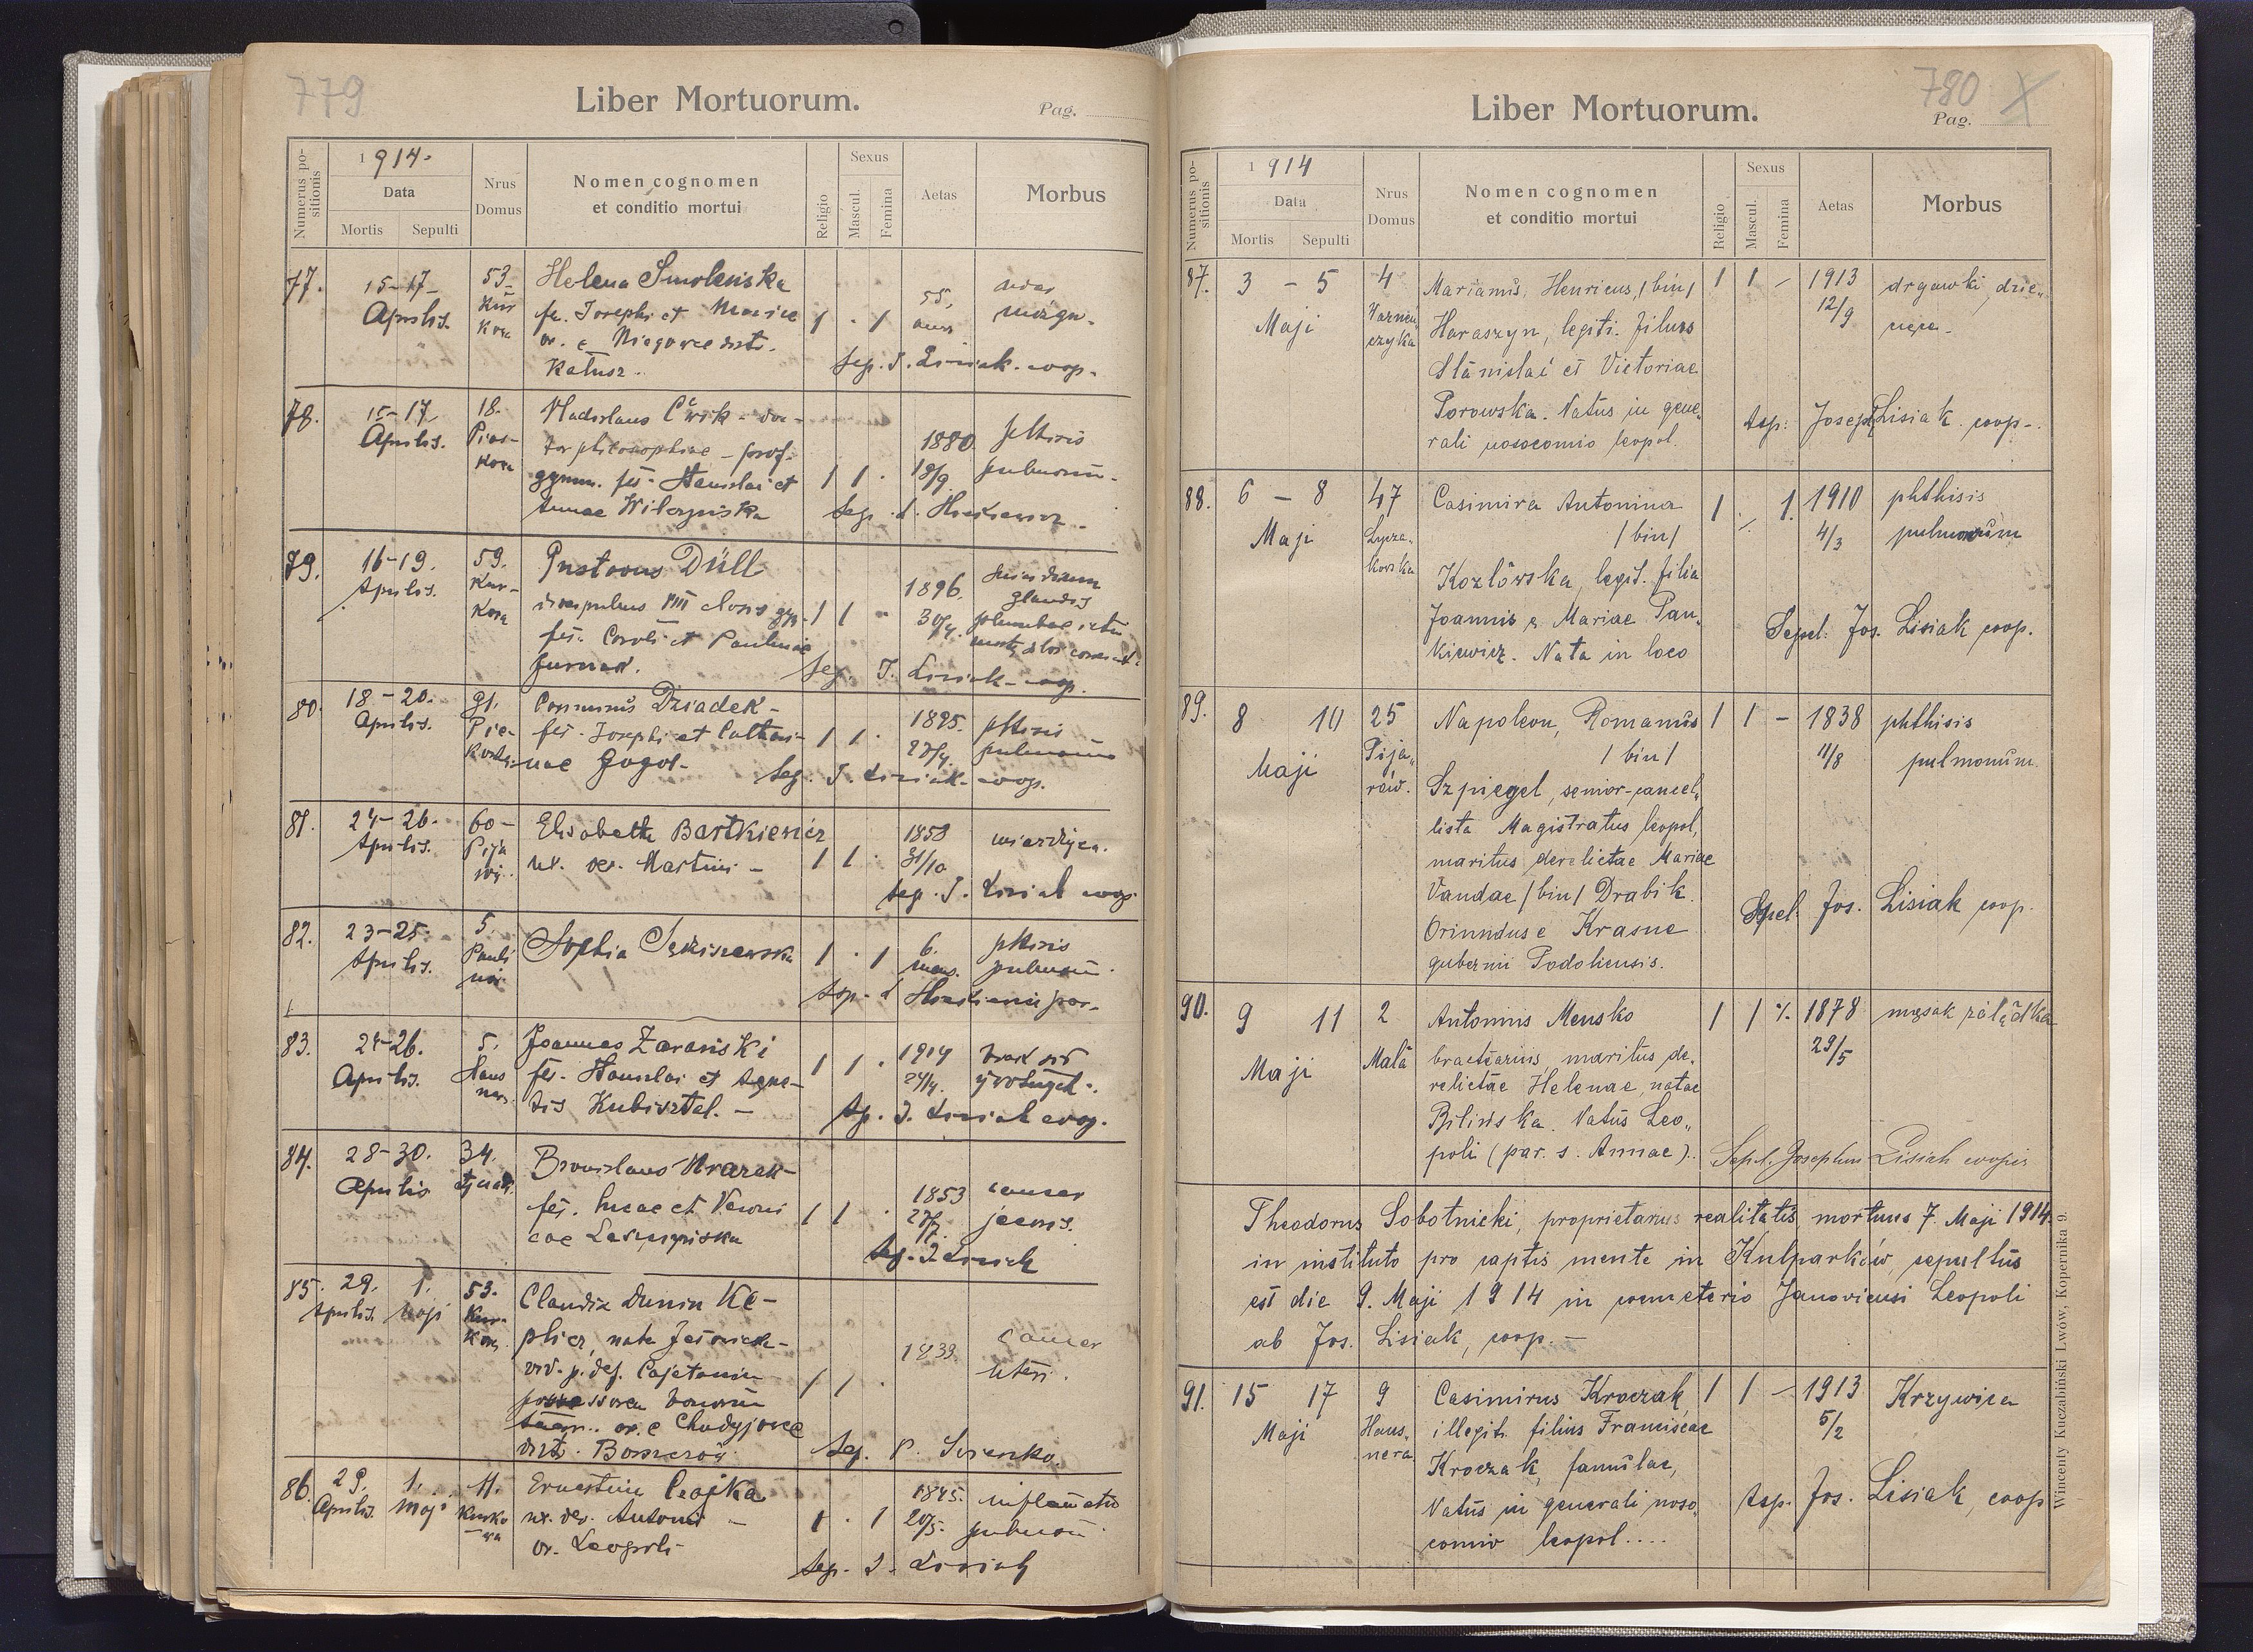 779
Liber Mortuorum.
Pag.
Numerus positionis
1914.
Data
Mortis Sepulti
Nrus Domus
Nomen cognomen
et conditio mortui
Religio
Sexus
Mascul.
Femina
Aetas
Morbus
77. 15-17- 53- Helena Smoleńska
Aprilis. Kur fa. Josephi et Mariae 1 . 1 55,
kowa or. e Niegowce distr.
Kałusz. Sep. J. Lisiak. coop.
78. 15-17 18. Vladislaus Ćwik - doc-
Aprilis. Pias- tor philosophiae - prof. 1880. phtisis
kowa gymn. fs. Stanislai et 1 1 . 18/9. pulmonum.
Annae Wilczyńska Sep.
79. 16-19. 59. Gustavus Düll
Aprilis. Kur- discipulus VIII class gy. 1 1 - 1896.
kowa fs. Caroli et Paulinae 30/4.
Sep. J. Lisiak - coop.
80. 18-20. 91. Dziadek -
Aprilis. Pie- fs. Josephi et Cathari- 1 1 . 1895. phtisis
nae Gogol- 27/4. pulmonum
Sep. J. Lisiak- coop.
81. 24-26. 60- Elisabetha Bartkiewicz 1858
Aprilis. Pija ux. der. Martini - 1 1 . 31/10
Sep. J. Lisiak coop.
82. 23-25. 5. Sophia 1 . 1 6. phtisis
Aprilis. Pauli mens. pulmonum.
83. 24-26. 5. Joannes Zarański 1 1 . 1914
Aprilis. Haus fs. Stanislai et Agne- 24/4.
ner. tis Kubisztal. - Sep. J. Lisiak coop.
84. 28-30. 34. Bronislaus
Aprilis fs. Lucae et Veroni 1 1 . 1853 cancer
cae 27/7.
Sep. J. Lisiak
85. 29. 1. 53. Claudia Dunin Kę-
Aprilis. Maji Kur- plicz, nata
kowa vid. p. def. Cajetanum 1 1 . 1839 cancer
uteri.
distr. Sep. P.
86. 29. 1. 11. Ernestine Czajka 1845. inflamatio
Aprilis. Maji Kurko ux. der. Antonii - 1 . 1 20/5. pulmonum
wa or. Leopoli Sep. J. Lisiak
780 X
Liber Mortuorum.
Pag.
Numerus positionis
1914
Data
Mortis Sepulti
Nrus Domus
Nomen cognomen
et conditio mortui
Religio
Sexus
Mascul.
Femina
Aetas
Morbus
87. 3 - 5 4 Marianus, Henricus, /bin/ 1 1 - 1913 drgawki dzie„
Maji Warneń„ Haraszyn, legiti. filius 12/9 cięce.
czyka Stanislai et Victoriae
Porowska. Natus in gene„ Sep: Joseph Lisiak coop.
rali nosocomio leopol.
88. 6 - 8 47 Casimira Antonina 1 1. 1910 phthisis
Maji Łycza- /bin/ 4/3 pulmonum
kowska Kozłowska, legit. filia
Joannis & Mariae Pan„ Sepel. Jos. Lisiak coop.
kiewicz. Nata in loco
89. 8 10 25 Napoleon, Romanus 1 1 - 1838 phthisis
Maji Pija„ /bin/ 11/8 pulmonum.
rów. Szpiegel, senior-cancel„
lista Magistratus leopol,
maritus derelictae Mariae
Vandae /bin/ Drabik. Sepel. Jos. Lisiak coop.
Oriundus e Krasne
gubernii Podoliensis.
90. 9 11 2 Antonius Mensko 1 1 1878 mięsak żołądka
Maji Mała bractearius, maritus de„ 29/5
relictae Helenae, natae
Bilińska. Natus Leo„
poli (par. s. Annae). Sepel. Josephus Lisiak cooper
Theodorus Sobotnicki, proprietarius realitatis, mortuus 7. Maji 1914.
in instituto pro captis mente in Kulparków, sepultus
est die 9. Maji 1914 in coemeterio Janoviensi Leopoli
ab Jos. Lisiak, coop. -
91. 15 17 9 Casimirus Kroczak, 1 1 - 1913 Krzywica
Maji Haus„ illegit. filius Franciscae 5/2
nera Kroczak, famulae,
Natus in generali noso„ Sep. Jos. Lisiak, coop
comio leopol....
Wincenty Kuczabiński Lwów, Kopernika 9.